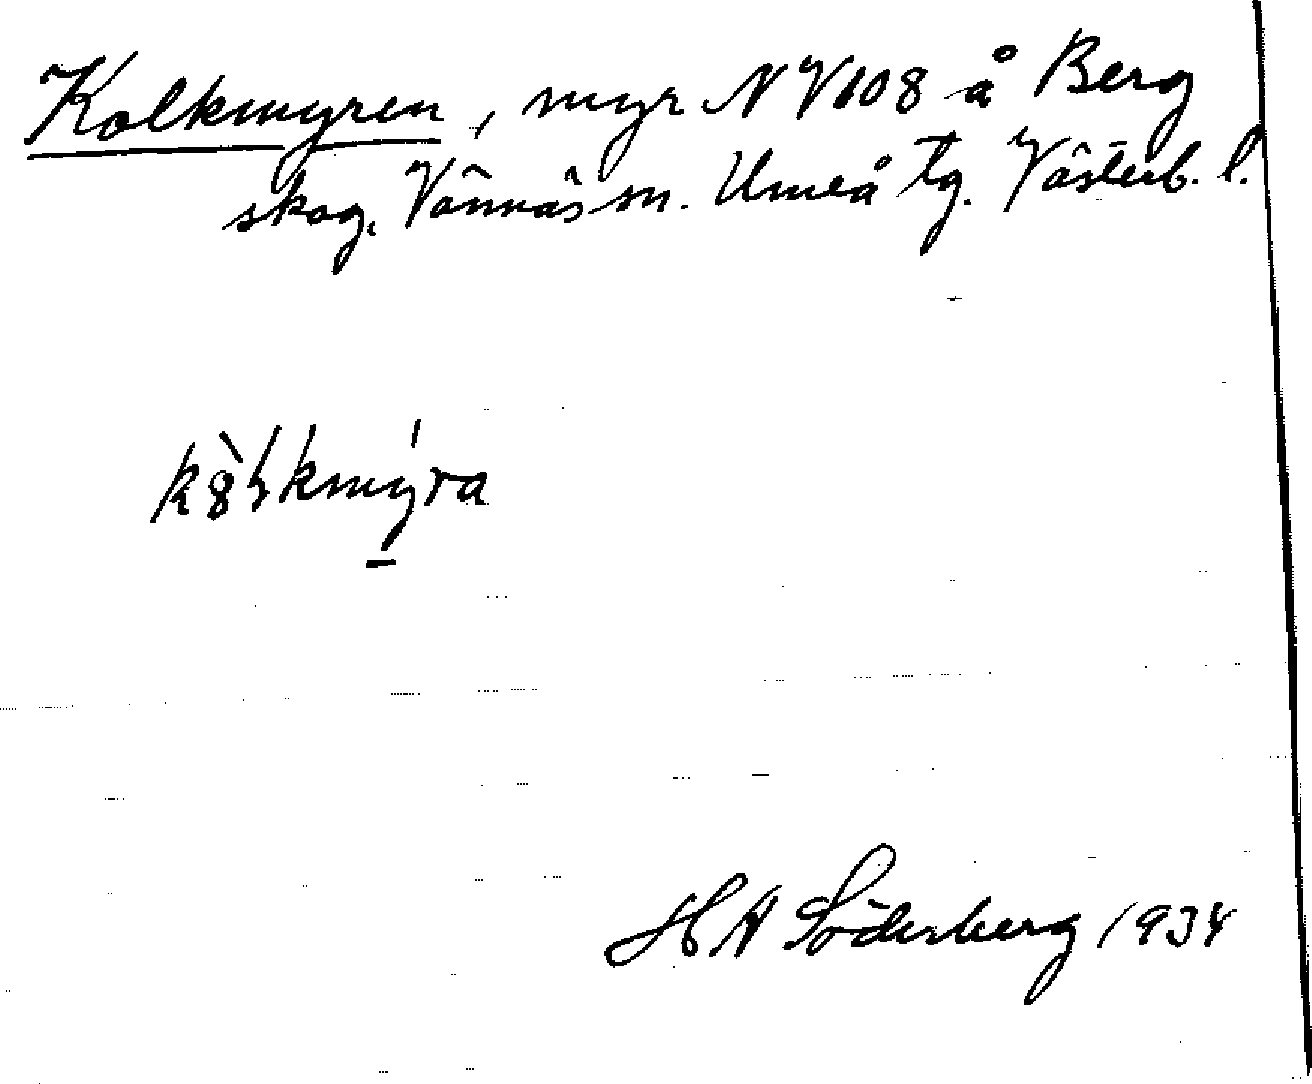 Kolkmyren, myr NV108 å Berg
skog, Vännäs sn. Umeå tg. Västerb. l.
H A Söderberg 1934